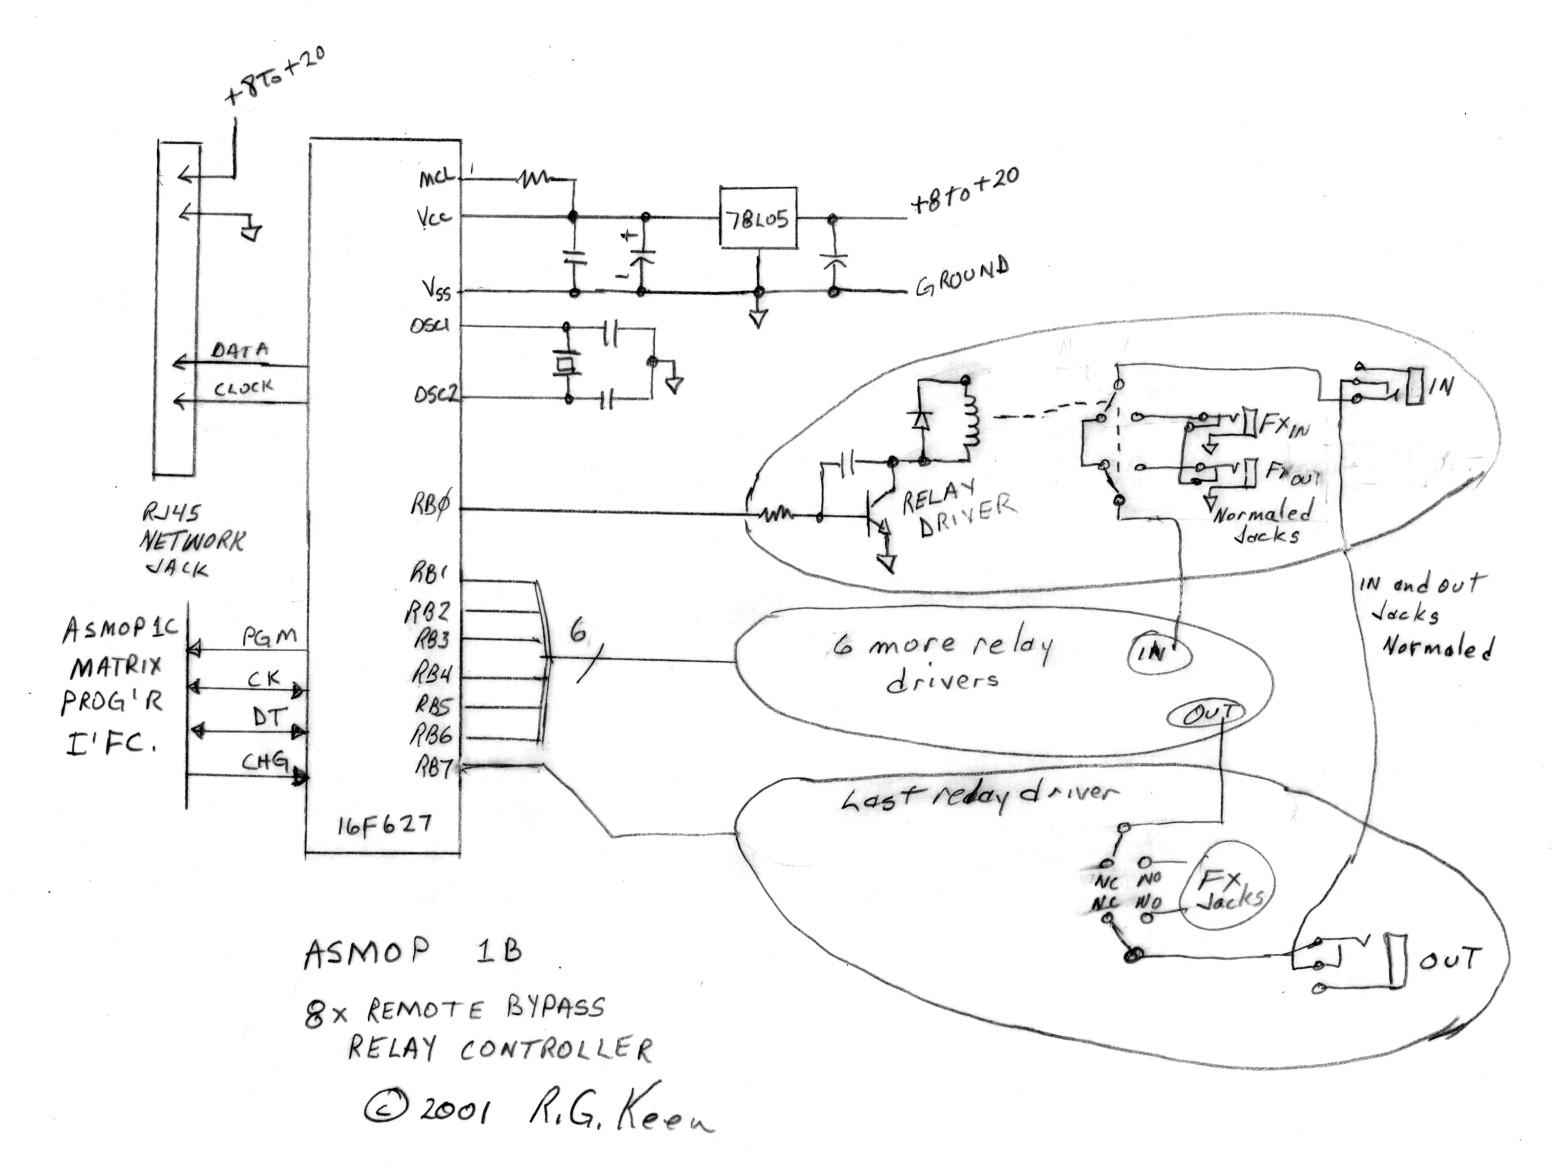 +8To+20
MCL
Vcc
78L05
+8to+20
Vss
GROUND
+
-
OSC1
OSC2
DATA
CLOCK
IN
FXIN
FXOUT
Normaled
Jacks
RELAY
DRIVER
RBØ
RJ45
NETWORK
JACK
RB1
RB2
RB3
RB4
RB5
RB6
RB7
6
6 more relay
drivers
IN
OUT
IN and out
Jacks
Normaled
ASMOP1C
MATRIX
PROG'R
I'FC.
PGM
CK
DT
CHG
16F627
Last relay driver
NC NO
NC NO
FX
Jacks
OUT
ASMOP 1B
8x REMOTE BYPASS
RELAY CONTROLLER
© 2001 R.G. Keen